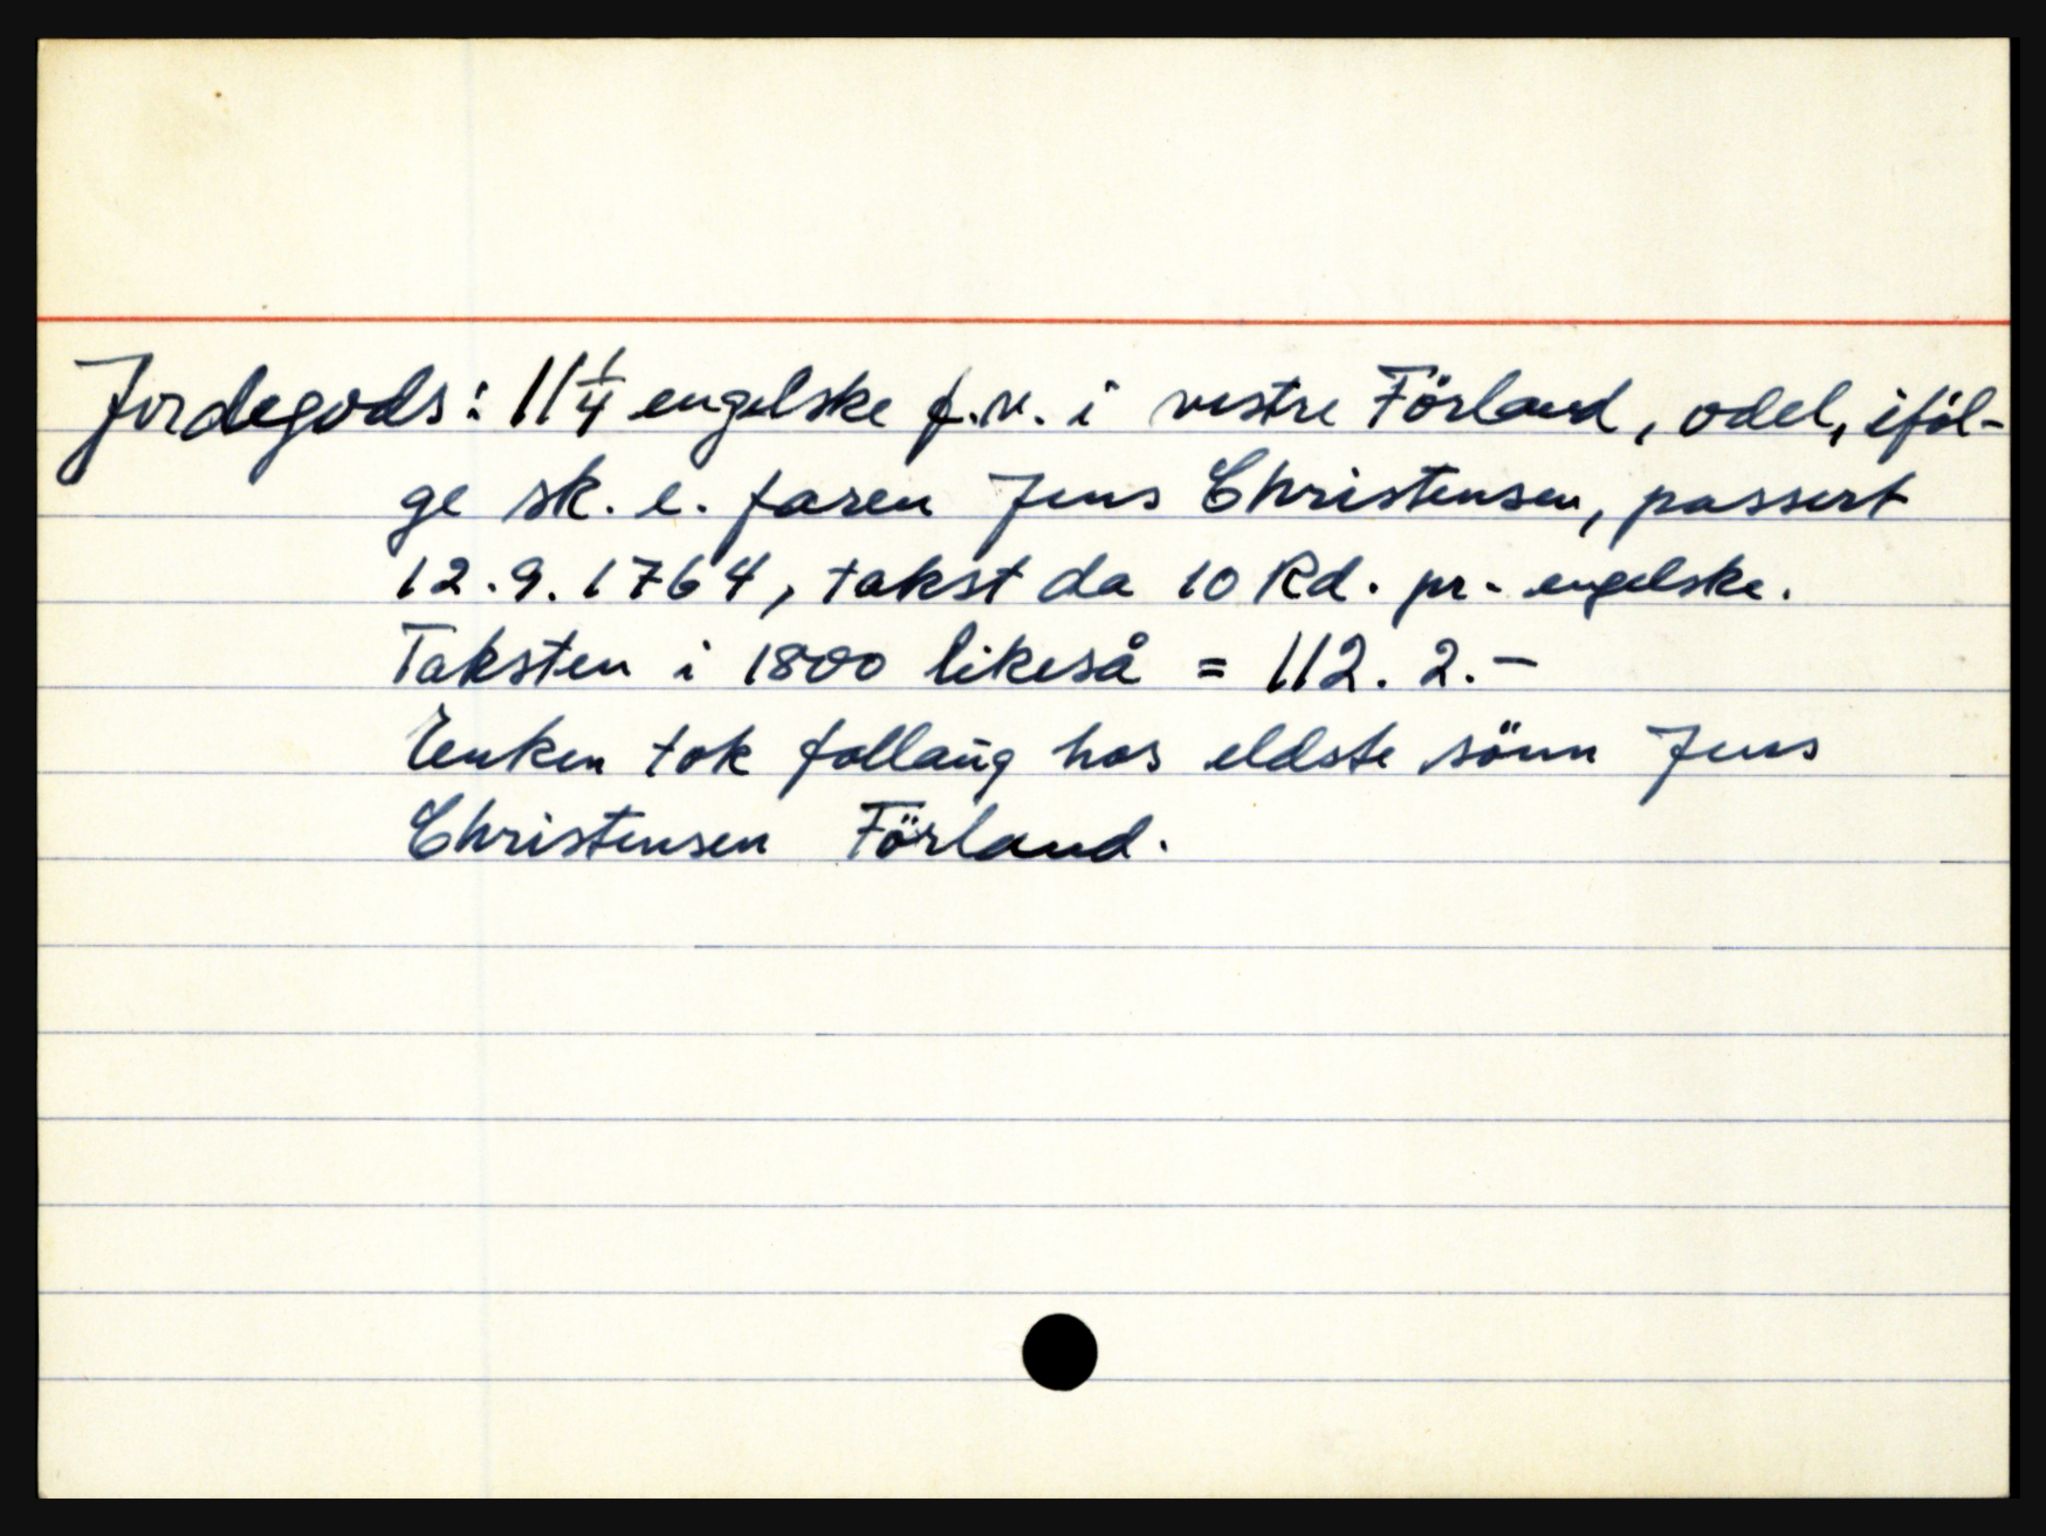 Jordegods: 11 1/4 engelske f.v. i vestre Förland, odel, iföl-
ge sk. e. faren Jens Christensen, passert
12.9.1764, takst da 10 Rd. pr. engelske.
Taksten i 1800 likeså = 112. 2.-
Enken tok follaug hos eldste sönn Jens
Christensen Förland.